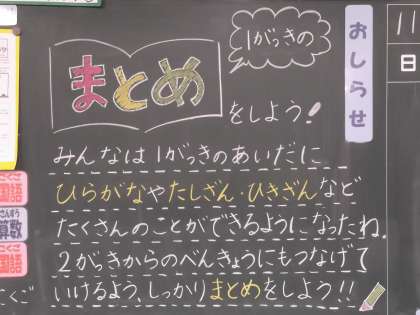 1がっきの
まとめ
をしよう!
おしらせ
11
日
みんなは1がっきのあいだに
ひらがなやたしざん・ひきざんなど
たくさんのことができるようになったね。
2がっきからのべんきょうにもつなげて
いけるよう、しっかりまとめをしよう!!
こくご
国語
さんすう
算数
こくご
国語
こくご